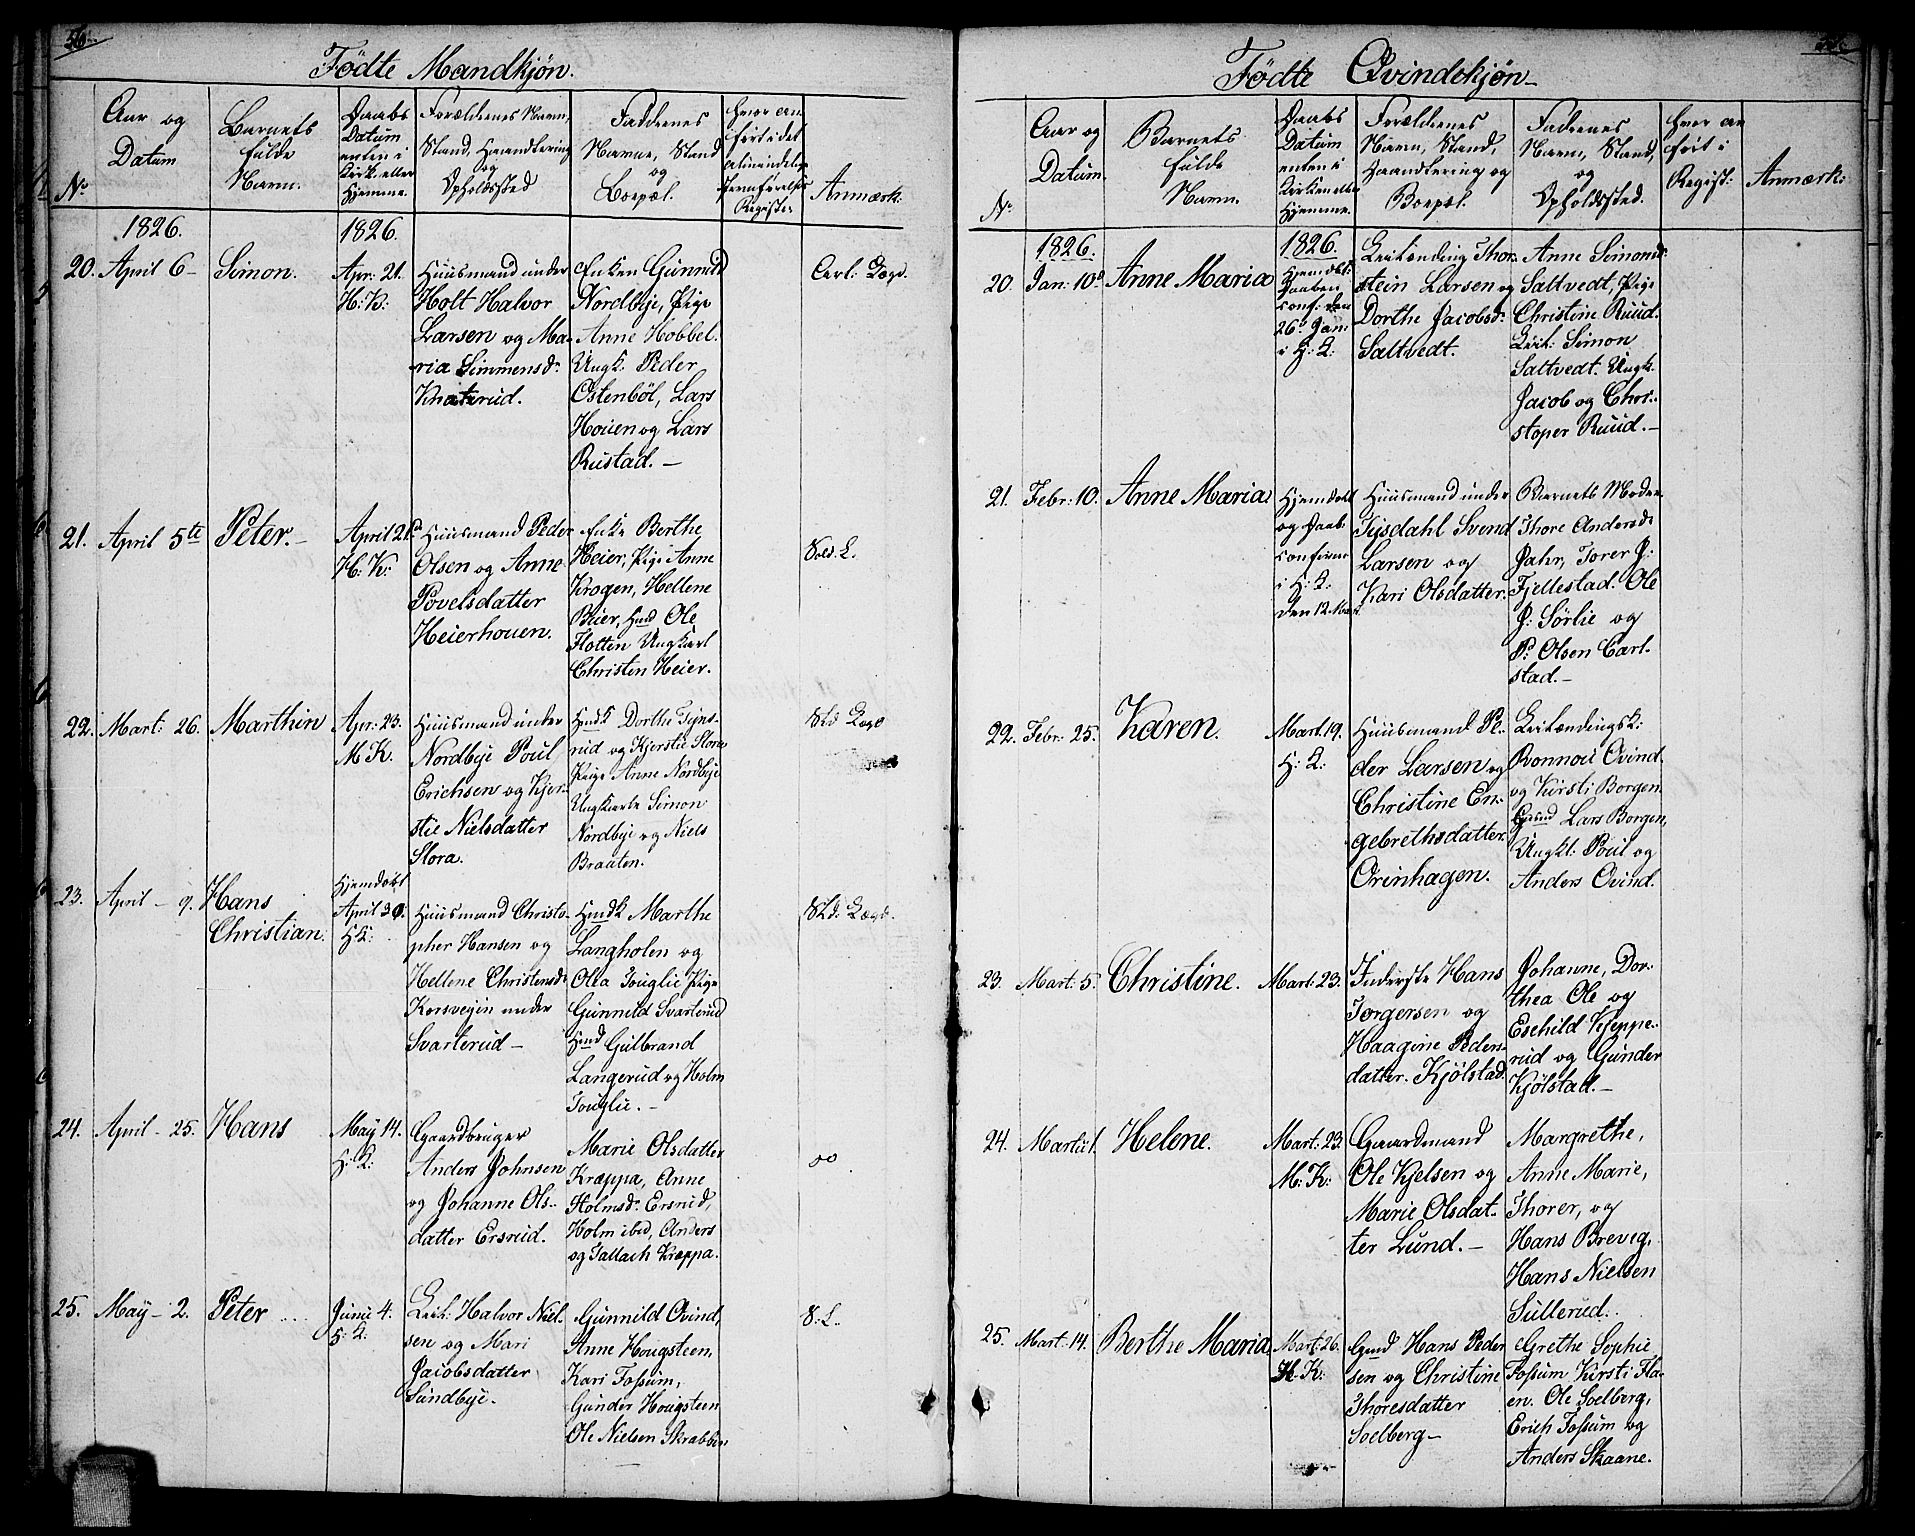 56.
Födte Mandkjön.
No
Aar og
Datum
Barnets
fulde
Navn.
Daabs
Datum
enten i
Kirk. eller
Hjemme.
Forældrenes Navn,
Stand, Haandtering
og
Opholdssted
Faddernes
Navne, Stand
og
Boepæl.
Hvor an
fört i det
alminndelige
Jevnförelses
Register
Anmærk:
1826.
1826.
20.
April 6-
Simon.
Apr: 21.
H: K:
Huusmand under
Holt Halvor
Larsen og Ma-
ria Simmensd.
Knaterud.
Enken Gunnild
Nordbye, Pige
Anne Hobbel.
Ungk. Peder
Ostenböl, Lars
Houen og Lars
Rustad. -
21.
April 5te
Peter. -
April 21
H: K:
Huusmand Peder
Olsen og Anne
Povelsdatter
Heierhouen.
Enke Berthe
Heier, Pige Anne
Krogen, Hellene
Beier, Hmd Ole
Flotten Ungkarl
Christen Heier.
Sold. L.
22.
Mart: 26.
Marthin
Apr: 23.
M K.
Huusmand under
Nordbye Poul
Erichsen og Kjer-
stie Nielsdatter
Slora.
Hmdk Dorthe Tejns-
rud og Kjerstie Slora
Pige Anne Nordbye
Ungkarle Simon
Nordbye og Niels
Braaten.
23.
April - 9.
Hans
Christian.
Hjemdöbt
April 30
H K:
Huusmand Christo-
pher Hansen og
Hellene Christensd
Korsvegin under
Svarterud -
Hmdk Marthe
Langholen og
Olea Touglie Pige
Gunnild Svarterud
Hmd Gulbrand
Langerud og Holm
Touglie. -
24.
April - 25.
Hans
May 14.
H: K:
Gaardbruger
Anders Johnsen
og Johanne Ols-
datter Ersrud.
Marie Olsdatter
Kræppa, Anne
Holmsd: Ersrud,
Holm ibid, Anders
og Tallach Kræppa.
25.
May - 2.
Peter
Junii 4.
Leil: Halvor Niel-
sen og Mari
Jacobsdatter
Sundbye.
Gunnild Ovind,
Anne Hougsteen,
Kari Fossum,
Gunder Hougsteen
Ole Nielsen Skrabben
S: L.
Födte Qvindekjön-
No
Aar og
Datum.
Barnets
fulde
Navn.
Daabs
Datum
enten i
Kirken eller
Hjemme.
Forældrenes
Navn, Stand,
Haandtering og
Boepæl.
Faddernes
Navn, Stand,
og
Opholdssted.
Hvor an
fört i
Regist:
Anmærk:
1826.
1826.
20.
Jan: 10
Anne Maria
Hjemdöbt:
Daaben
conf: den
26 Jan:
i H: K:
Leilænding Thor-
stein Larsen og
Dorthe Jacobsd:
Saltvedt.
Anne Simonsd:
Saltvedt, Pige
Christine Ruud.
Leil: Simon
Saltvedt. Ungk:
Jacob og Chri-
stoper Ruud. -
21.
Febr: 10.
Anne Maria
Hjemdöbt
og Daab.
confirm
i H: K:
den 12 Mart
Huusmand under
Tysdahl Svend
Larsen og
Kari Olsdatter.
Barnets Moder
Thore Andersd:
Jahr, Torer J:
Fjellestad. Ole
J: Sörlie og
P: Olsen Carl-
stad. -
22.
Febr: 25.
Karen.
Mart. 19.
H: K:
Huusmand Pe-
der Larsen og
Christine En-
gebrethsdatter.
Orinhagen.
Leilændingsk:
Ronnou Ovind
og Kirsti Borgen.
Gmd Lars Borgen,
Ungkl: Poul og
Anders Ovind.
23.
Mart: 5.
Christine.
Mart: 23.
Inderste Hans
Torgersen og
Haagine Peders-
datter. Kjölstad.
Johanne, Dor-
thea Ole og
Eschild Kjeppe-
rud og Gunder
Kjölstad. -
24.
Martii 1.
Helene.
Mart: 23.
M: K:
Gaardmand
Ole Kjelsen og
Marie Olsdat-
ter Lund. -
Margrethe,
Anne Marie,
Thorer, og
Hans Brevig,
Hans Nielsen
Sullerud.
25.
Mart: 14.
Berthe Maria
Mart: 26.
H. K:
Gmd Hans Peder
sen og Christine
Thoresdatter
Soelberg -
Grethe Sophie
Fossum, Kirsti Fla-
en. Ole Soelberg,
Erich Fossum og
Anders Skaane.